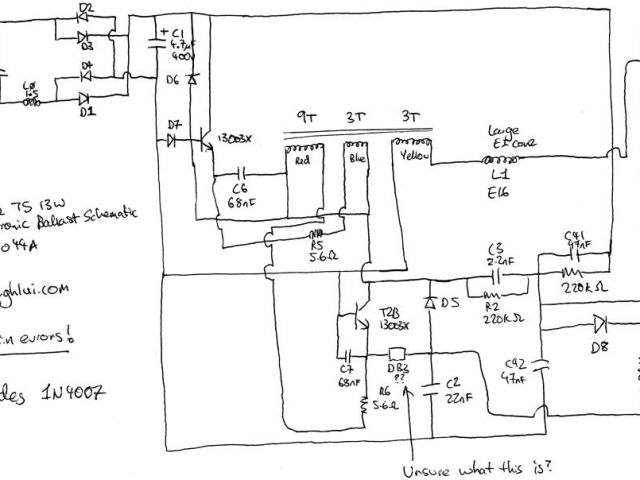 D2
D3
D4
D1
L0
1.5
+ C1
4.7µF
400v
D6
D7
13003X
C6
68nF
9T
3T
3T
Red
Blue
Yellow
R5
5.6Ω
Large
EI core
L1
E16
C3
2.2nF
R2
220kΩ
C41
47nF
220kΩ
D8
C42
47nF
D5
C2
22nF
T2B
13003X
C7
68nF
DB3
??
R6
5.6Ω
Unsure what this is?
TS 13W
ronic Ballast Schematic
044A
ghlui.com
in errors!
des 1N4007